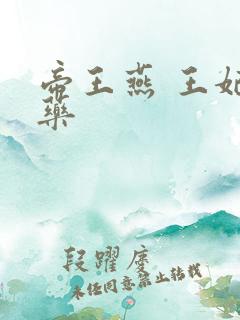 帝王燕 王妃
藥
段躍度
未经同意禁止转载